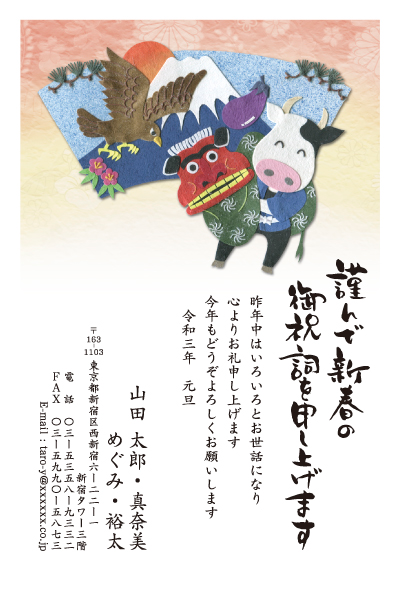 謹んで新春の
御祝詞を申し上げます
昨年中はいろいろとお世話になり
心よりお礼申し上げます
今年もどうぞよろしくお願いします
令和三年　元旦
山田 太郎・真奈美
めぐみ・裕太
〒163-1103
東京都新宿区西新宿六ー二二ー一
新宿タワー三階
電話　〇三ー五三五八ー九三三二
FAX　〇三ー五九九〇ー五八七三
E-mail：taro-y@xxxxxx.co.jp